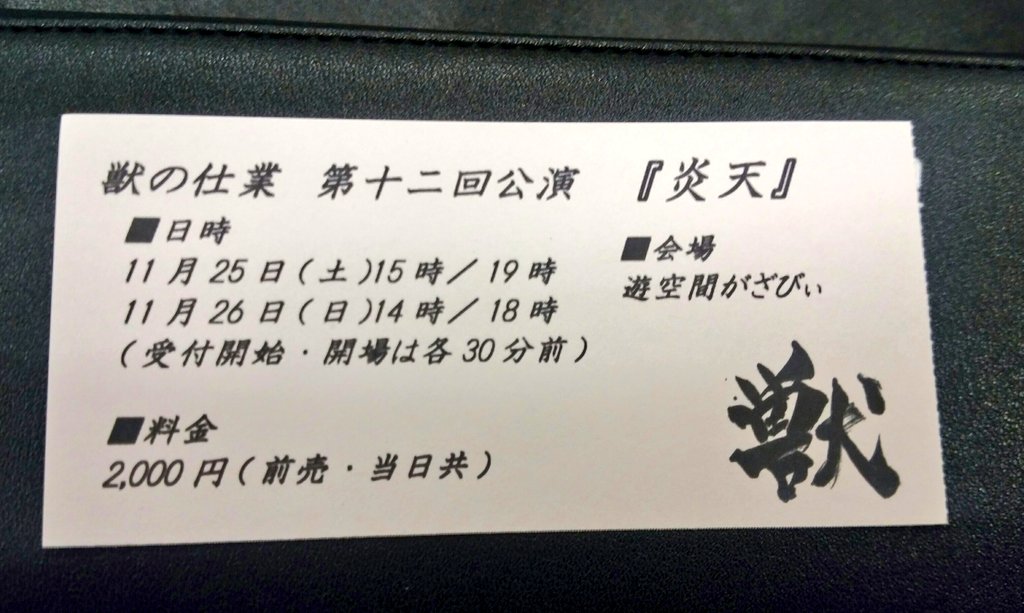 獣の仕業 第十二回公演 『炎天』
■日時
11月25日(土)15時／19時
11月26日(日)14時／18時
(受付開始・開場は各30分前)
■料金
2,000円(前売・当日共)
■会場
遊空間がざびぃ
獣